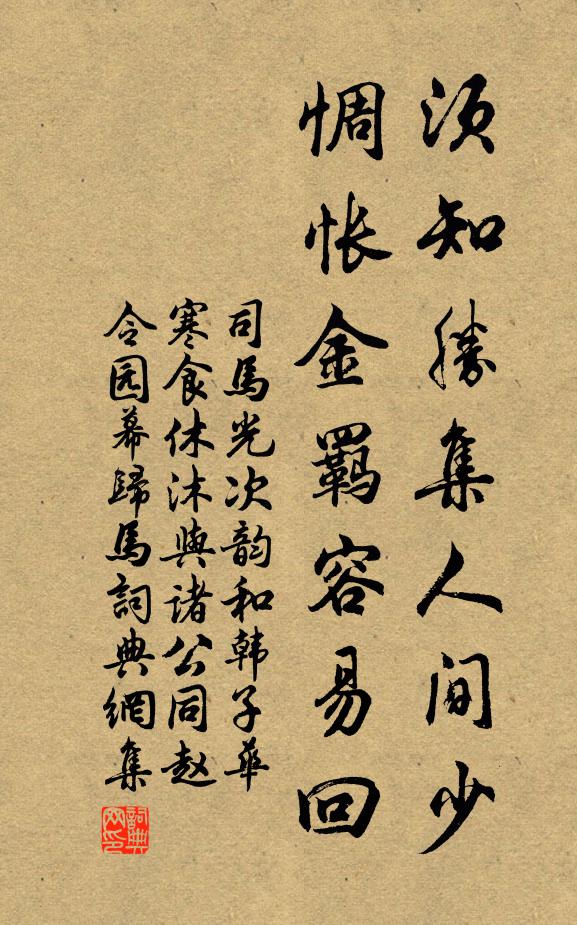 须知勝集人间少
惆怅金羁容易回
司馬光次韵和韩子華
寒食休沐與诸公同赵
令园幕歸馬詞典網集
詞典网印